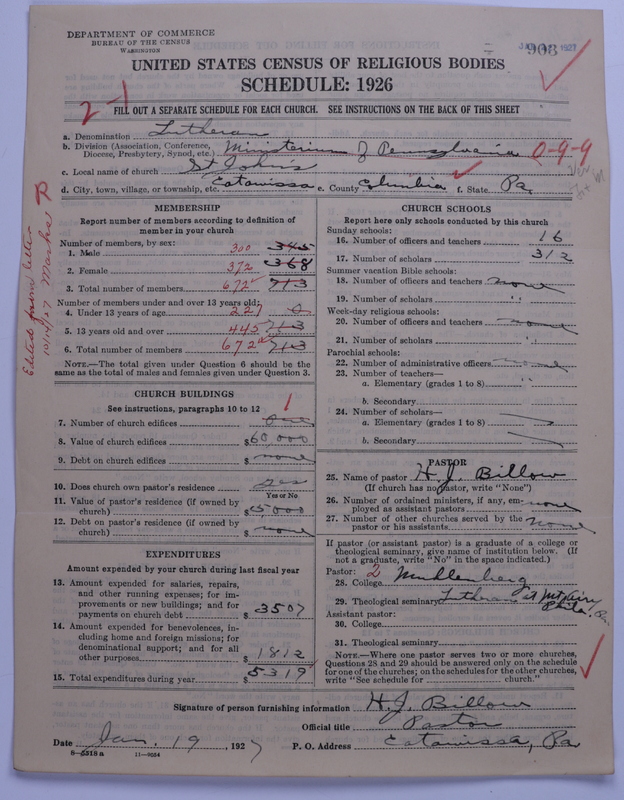 DEPARTMENT OF COMMERCE
BUREAU OF THE CENSUS
WASHINGTON
908
1927
UNITED STATES CENSUS OF RELIGIOUS BODIES
SCHEDULE: 1926
2-1
FILL OUT A SEPARATE SCHEDULE FOR EACH CHURCH. SEE INSTRUCTIONS ON THE BACK OF THIS SHEET
a. Denomination Lutheran
b. Division (Association, Conference, Diocese, Presbytery, Synod, etc.) Ministerium of Pennsylvania 0-9-9
c. Local name of church St John's
d. City, town, village, or township, etc. Catawissa e. County Columbia f. State Pa
Edited from letter
10/14/27 Marks
MEMBERSHIP
Report number of members according to definition of
member in your church
Number of members, by sex:
1. Male 300 345
2. Female 372 368
3. Total number of members 672 713
Number of members under and over 13 years old:
4. Under 13 years of age 227 0
5. 13 years old and over 445 713
6. Total number of members 672 713
NOTE.—The total given under Question 6 should be the
same as the total of males and females given under Question 3.
CHURCH BUILDINGS
See instructions, paragraphs 10 to 12
7. Number of church edifices one 1
8. Value of church edifices $60,000
9. Debt on church edifices $ none
10. Does church own pastor's residence yes
Yes or No
11. Value of pastor's residence (if owned by
church) $5000
12. Debt on pastor's residence (if owned by
church) $ none
EXPENDITURES
Amount expended by your church during last fiscal year
13. Amount expended for salaries, repairs,
and other running expenses; for im-
provements or new buildings; and for
payments on church debt $3507
14. Amount expended for benevolences, in-
cluding home and foreign missions; for
denominational support; and for all
other purposes $1812
15. Total expenditures during year $5319
CHURCH SCHOOLS
Report here only schools conducted by this church
Sunday schools:
16. Number of officers and teachers 16
17. Number of scholars 312
Summer vacation Bible schools:
18. Number of officers and teachers none
19. Number of scholars "
Week-day religious schools:
20. Number of officers and teachers none
21. Number of scholars "
Parochial schools:
22. Number of administrative officers none
23. Number of teachers—
a. Elementary (grades 1 to 8) "
b. Secondary
24. Number of scholars—
a. Elementary (grades 1 to 8)
b. Secondary
PASTOR
25. Name of pastor H. J. Billow
(If church has no pastor, write "None")
26. Number of ordained ministers, if any, em-
ployed as assistant pastors none
27. Number of other churches served by the
pastor or his assistants none
If pastor (or assistant pastor) is a graduate of a college or
theological seminary, give name of institution below. (If
not a graduate, write "No" in the space indicated.)
Pastor: 2
28. College Muhlenberg
29. Theological seminary Lutheran at Mt Airy
Phila. Pa.
Assistant pastor:
30. College
31. Theological seminary
NOTE.—Where one pastor serves two or more churches,
Questions 28 and 29 should be answered only on the schedule
for one of the churches; on the schedules for the other churches,
write "See schedule for church."
Signature of person furnishing information H. J. Billow
Official title Pastor
Date Jan. 19, 1927 P. O. Address Catawissa, Pa
8—5518 a 11—9054